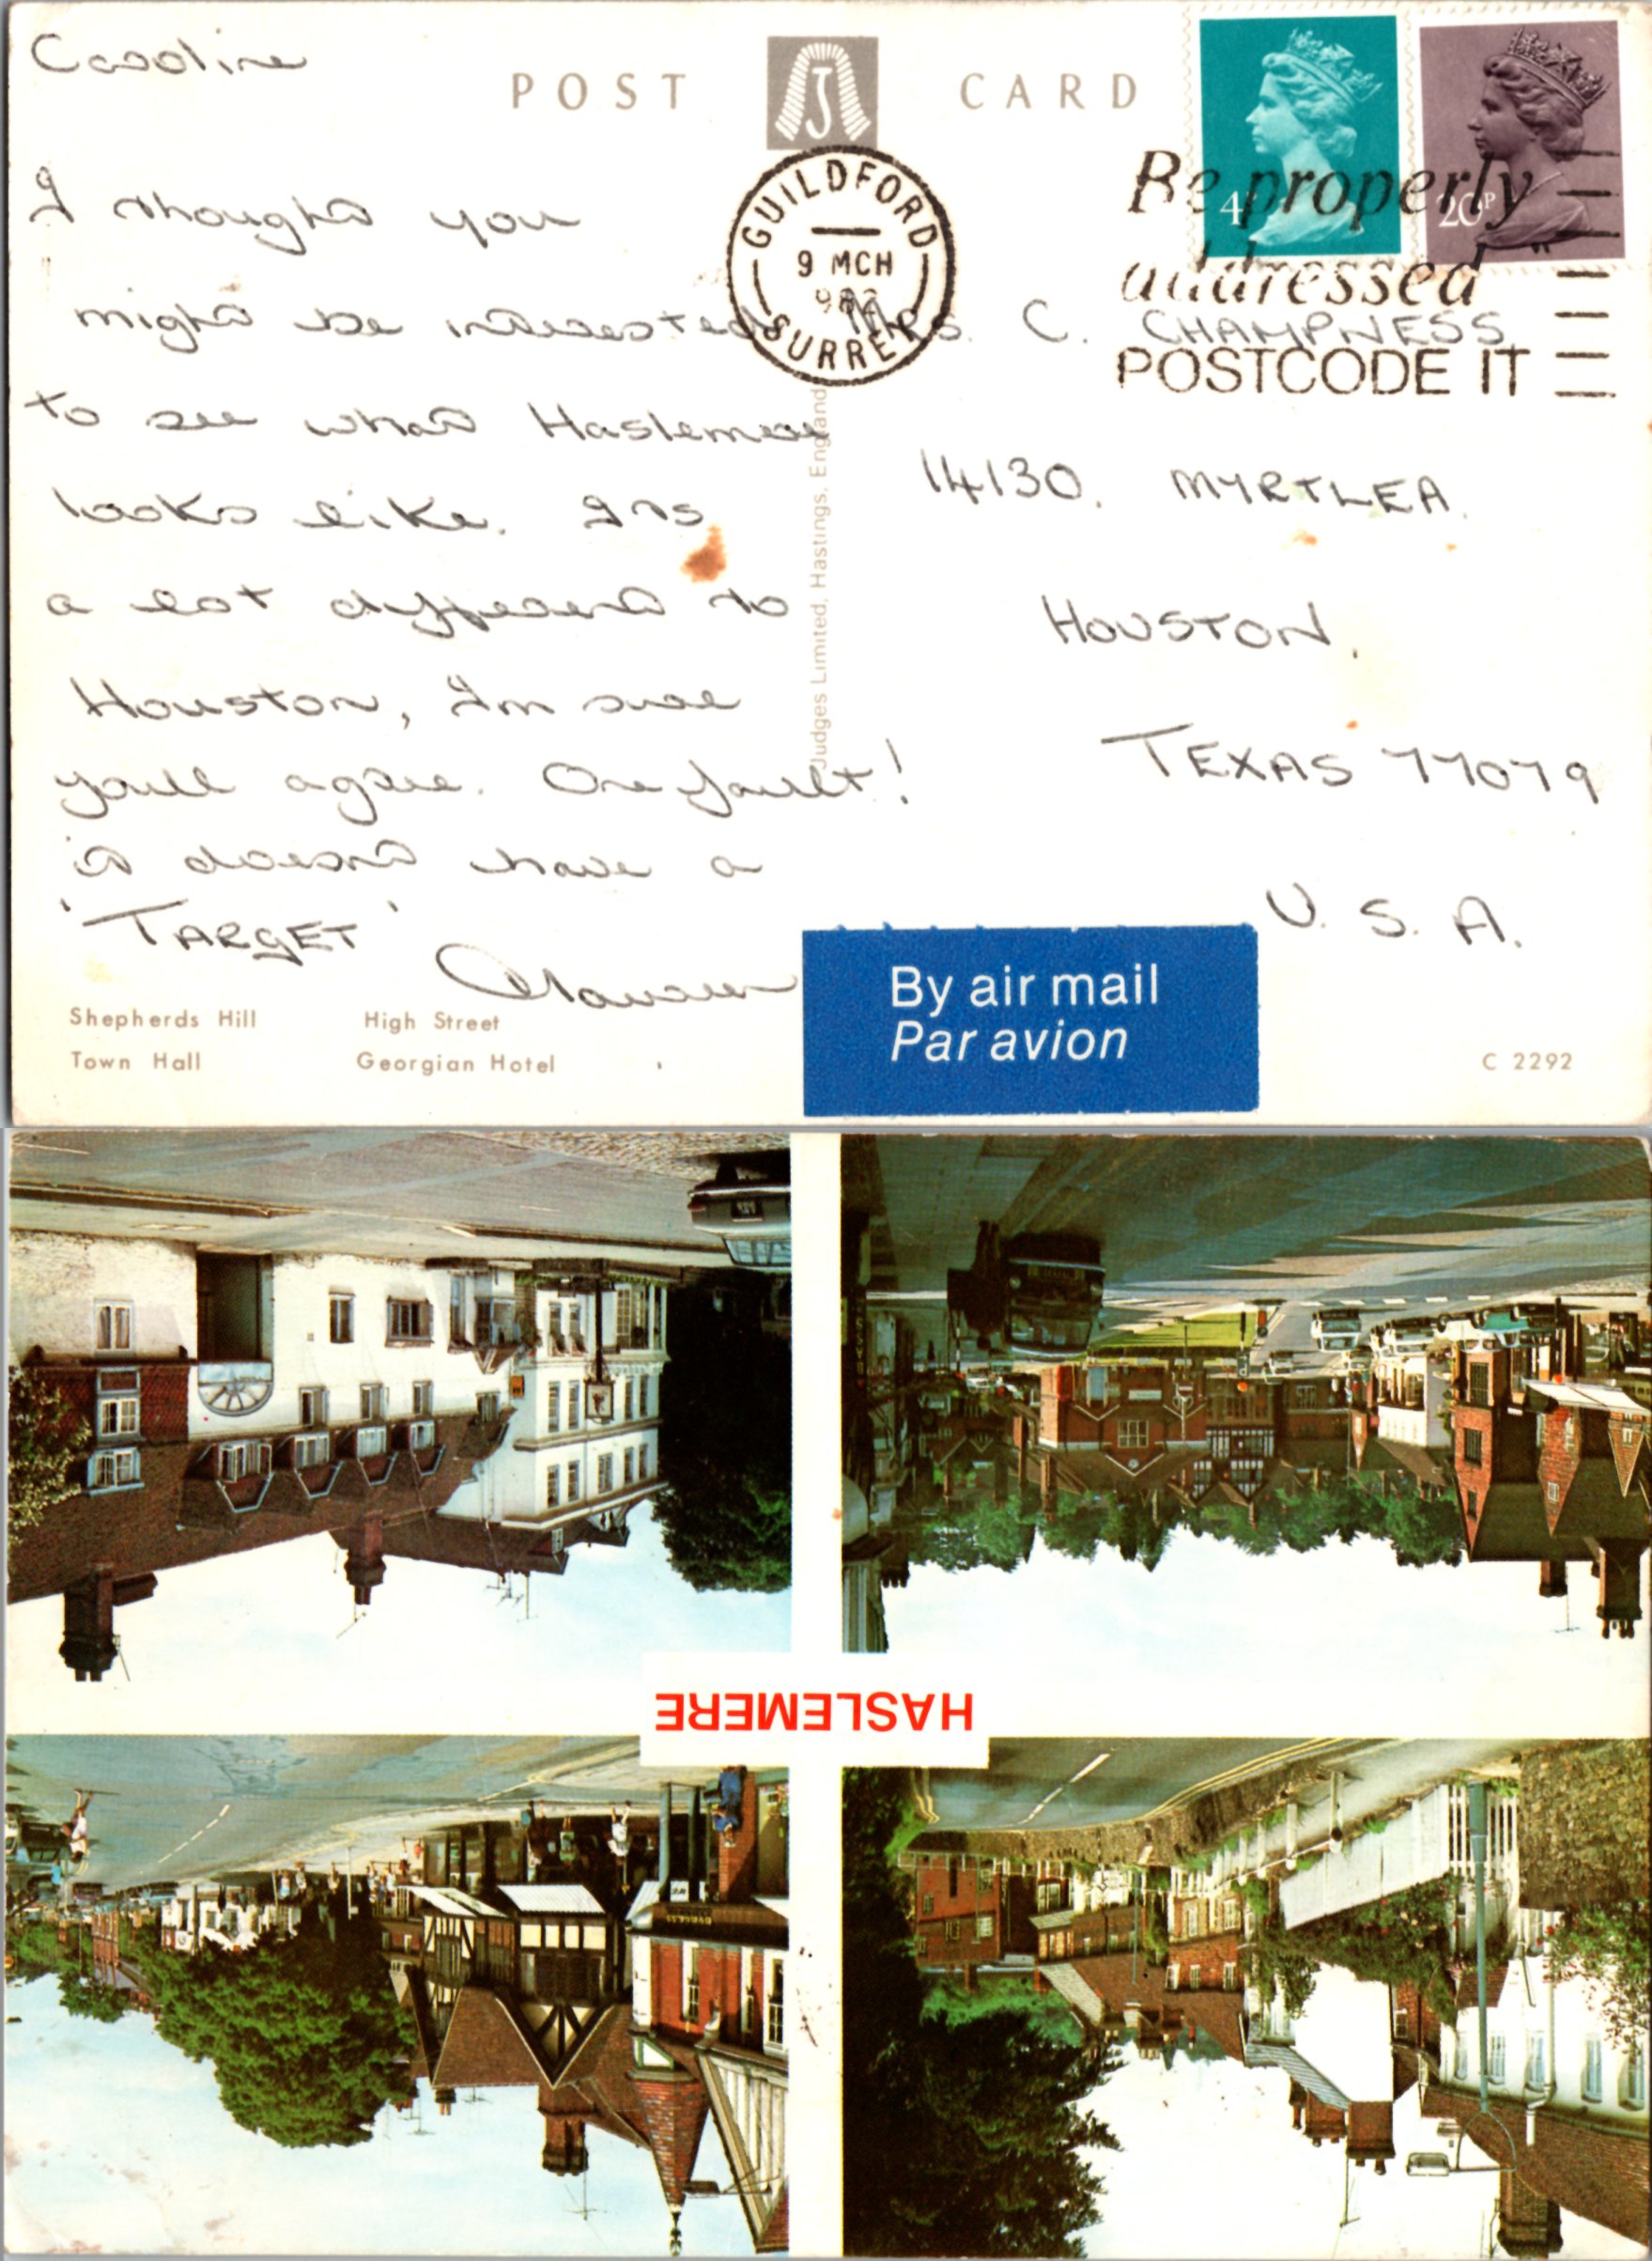 Caroline
POST CARD
I thought you
might be interested
to see what Haslemere
looks like. Its
a lot different to
Houston, I'm sure
you'll agree. One fault!
it doesn't have a
'TARGET'
Shepherds Hill High Street
Town Hall Georgian Hotel
Judges Limited, Hastings, England
GUILDFORD
9 MCH
SURREY
4P
20P
Be properly
addressed
POSTCODE IT
Mrs. C. CHAMPNESS
14130. MYRTLEA.
HOUSTON.
TEXAS 77079
U. S. A.
By air mail
Par avion
C 2292
HASLEMERE